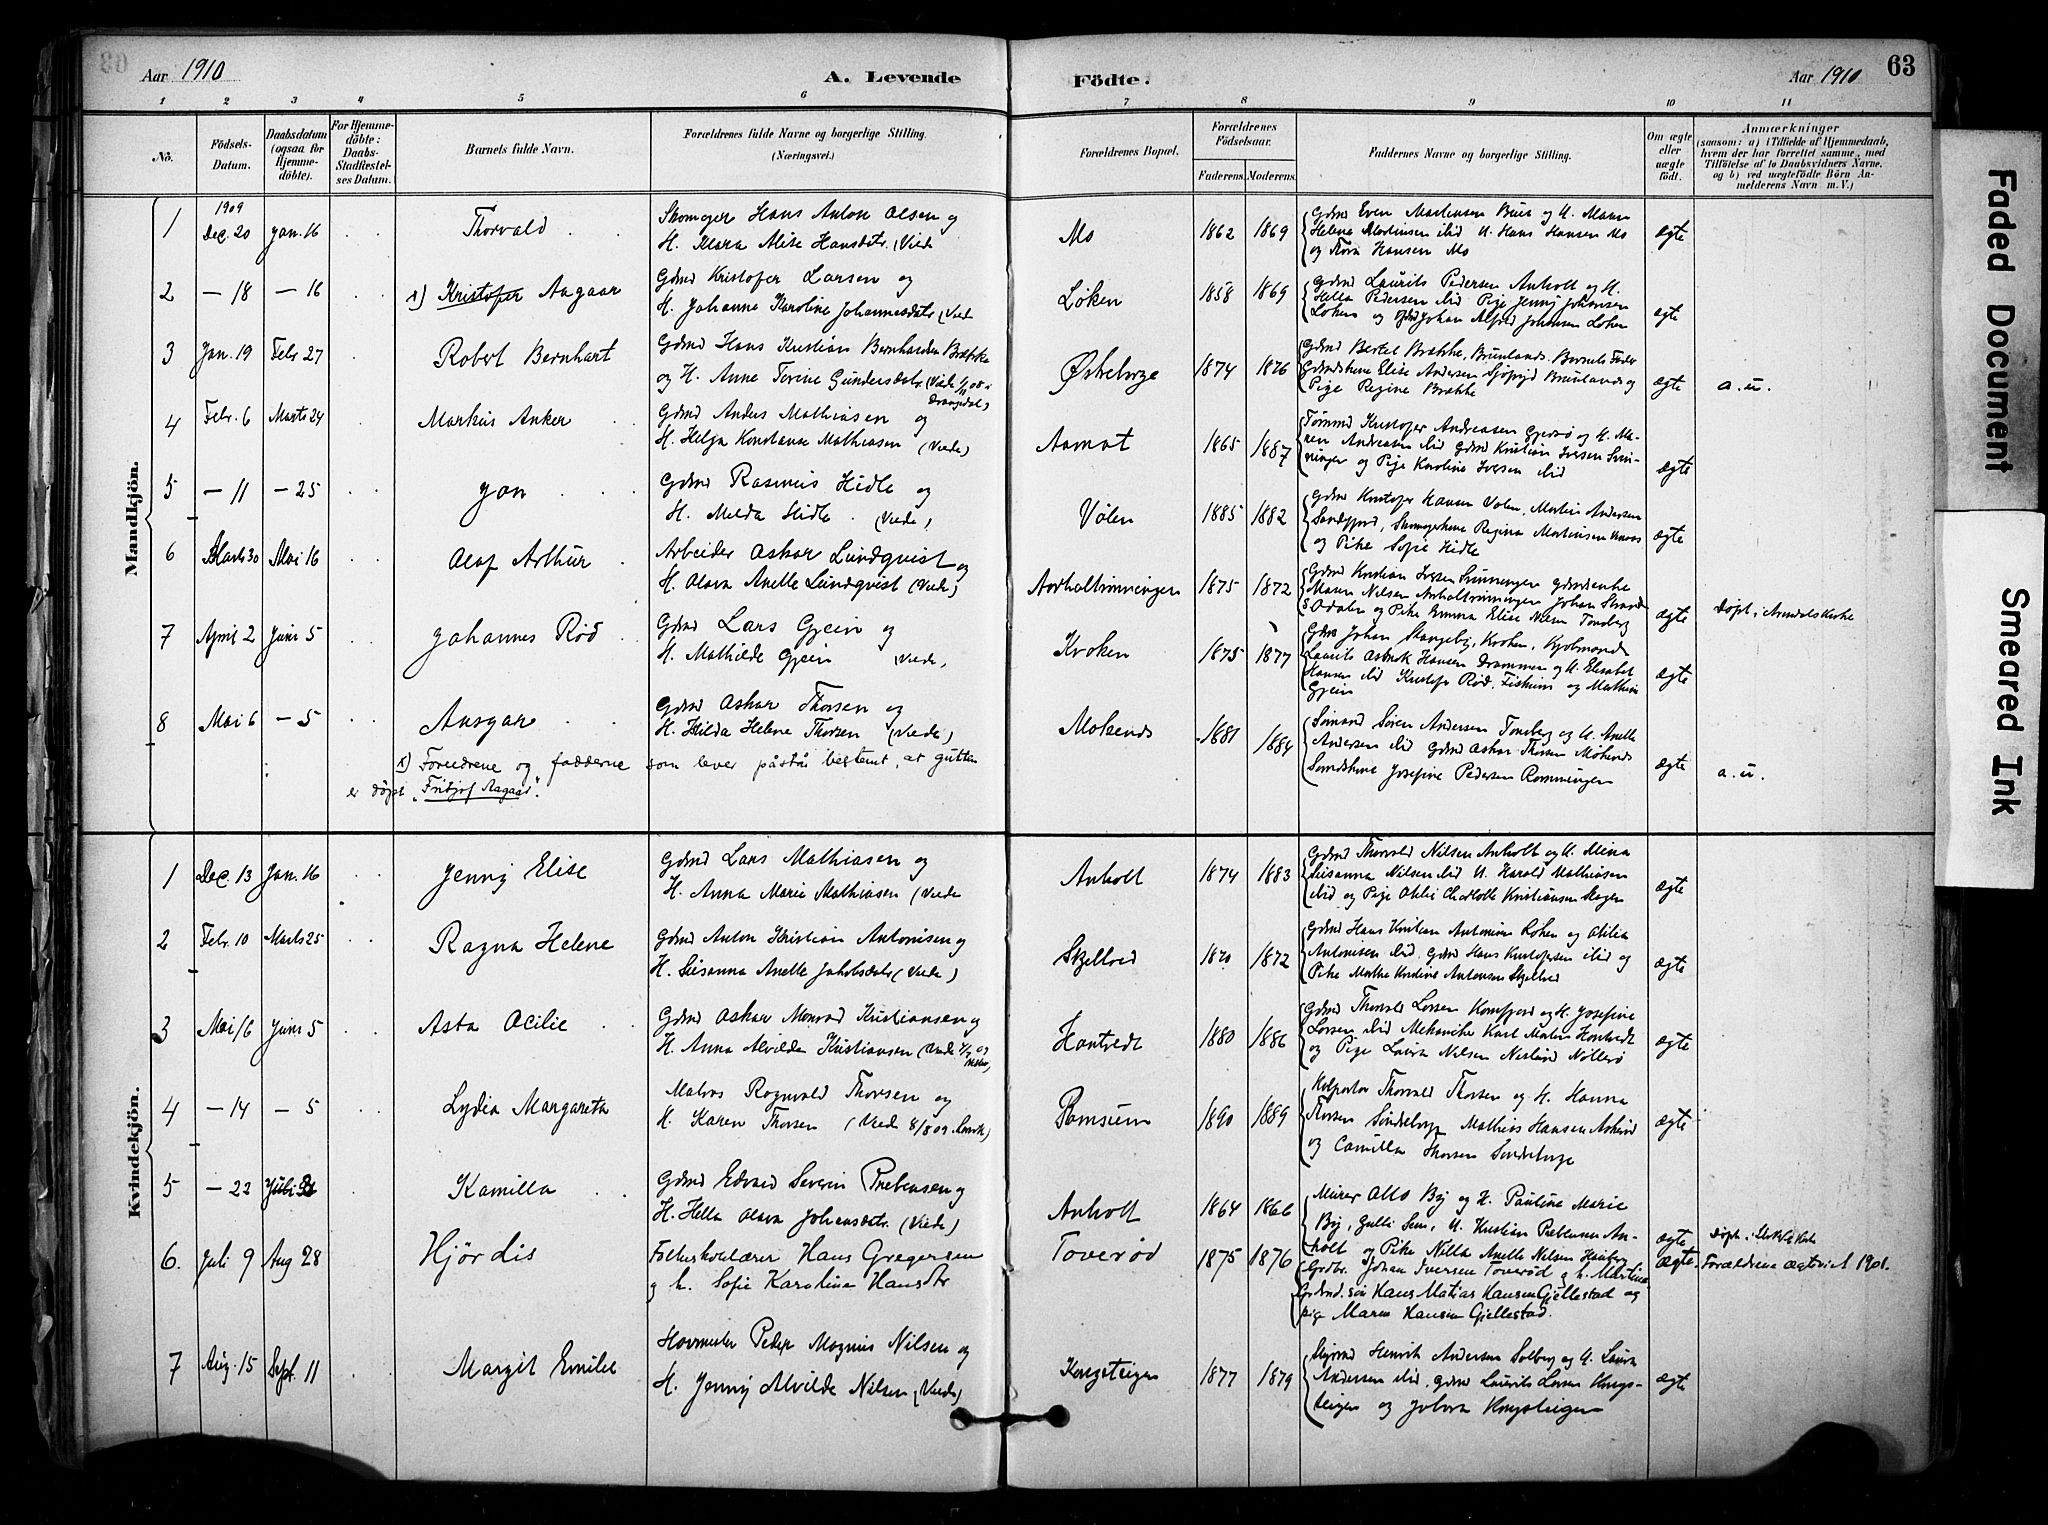 Aar 1910
A. Levende
Födte.
Aar 1910
63
1 2 3 4 5 6 7 8 9 10 11
No.
Födsels-Datum.
Daabsdatum (ogsaa for Hjemme-döbte).
For Hjemme-döbte: Daabs-Stadfæstel-ses Datum.
Barnets fulde Navn.
Forældrenes fulde Navne og borgerlige Stilling.
(Næringsvei.)
Forældrenes Bopæl.
Forældrenes Födselsaar.
Faderens. Moderens.
Faddernes Navne og borgerlige Stilling.
Om ægte eller uægte födt.
Anmærkninger
(saasom: a) i Tilfælde af Hjemmedaab,
hvem der har forrettet samme, med
Tilföielse af to Daabsvidners Navne.
og b) ved uægtefödte Börn An-
melderens Navn m. V.)
Mandkjön.
1 1909 Dec. 20 Jan. 16 Thorvald Skomager Hans Anton Olsen og
H. Klara Alise Hansdatr. (Viede
Mo 1862 1869 Gdmd Even Martinsen Bue og H. Maren
Helene Martinsen ibid U. Hans Hansen Mo
og Thora Hansen Mo
ægte
2 — 18 — 16 x) Kristofer Aagaar Gdmd Kristofer Larsen og
H. Johanne Karoline Johannesdatr (Viede
Løken 1858 1869 Gdmd Laurits Pedersen Anholt og H.
Hella Pedersen ibid Pige Jenny Johansen
Løken og Johan Alfred Johansen Løken
ægte
3 Jan. 19 Febr 27 Robert Bernhart Gdmd Hans Kristian Bernhardsen Brække
og H. Anne Terine Gundersdatr (Viede
Drangedal)
Østreborge 1874 1876 Gdmd Bertel Brække, Brunlands Barnets Fader
Elise Andersen Brunlands og
Pige Regine Brække
ægte a.u.
4 Febr. 6 Marts 24 Markus Anker Gdmd Anders Mathiasen og
H. Helga Konstanse Mathiasen (Viede)
Aamot 1865 1887 Tømmd Kristofer Andreasen Gjersø og H. Ma-
ren Andreasen ibid Gdmd Kristian Iversen Svin-
ninger og Pige Karoline Iversen ibid
ægte
5 — 11 — 25 Jon Gdmd Rasmus Hidle og
H. Melda Hidle (Viede)
Vølen 1885 1882 Gdmd Kristofer Hansen Vølen, Martin Andersen
Sandefjord, Regina Martinsen
og Pike Sofie Hidle
ægte
6 Marts 30 Mai 16 Olaf Arthur Arbeider Oskar Lundqvist og
H. Olava Anette Lundqvist (Viede)
1875 1872 Gdmd Kristian Iversen Svinningen
Maren Nilsen Johan Strand
og Pike Emma Elise Nilsen Tønsberg
ægte Døpt i Arendals kirke
7 April 2 Juni 5 Johannes Rød Gdmd Lars Gjein og
H. Mathilde Gjein (Viede)
Kroken 1875 1877 Gdmd Johan Stangeby, Kroken, Kjøbmand
Laurits Hansen Drammen og H. Elisabet
Hansen ibid Kristofer Rød. og Mathias
Gjein
ægte
8 Mai 6 — 5 Ansgar Gdmd Oskar Thorsen og
H. Hilda Helene Thorsen (Viede)
Molænds 1881 1884 Sømand Søren Andersen Tønsberg og H. Anette
Andersen ibid Gdmd Oskar Thorsen
Josefine Pedersen Romminger
ægte a.u.
x) Foreldrene og fadderne som lever påstår bestemt, at gutten
er døpt "Fritjof Aagaar".
Kvindekjön.
1 Dec. 13 Jan. 16 Jenny Elise Gdmd Lars Mathiasen og
H. Anna Marie Mathiasen (Viede
Anholt 1874 1883 Gdmd Thorvald Nilsen Anholt og H. Mina
Susanna Nilsen ibid U. Harald Mathiasen
ibid og Pige Otilie Charlotte Kristiansen
ægte
2 Febr. 10 Marts 25 Ragna Helene Gdmd Anton Kristian Antonisen og
H. Susanna Anette Jakobsdatr (Viede)
Skjelved 1870 1872 Gdmd Hans Kristian Antonisen Løken og Otilia
Antonisen ibid, Gdmd Hans Kristofersen ibid og
Pike Marthe Kristine Antonsen Skjelved
ægte
3 Mai 16 Juni 5 Asta Otilie Gdmd Oskar Monrad Kristiansen og
H. Anna Alvilde Kristiansen (Viede
Hontvedt 1880 1886 Gdmd Thorvald Larsen og H. Josefine
Larsen ibid Mekaniker Karl Malin Hontvedt
og Pige Laura Nilsen Nøtterø
ægte
4 — 14 — 5 Lydia Margareta Matros Ragnvald Thorsen og
H. Karen Thorsen (Viede 8/8 09. Larvik)
Bomsum 1890 1889 Kolportør Thorvald Thorsen og H. Hanna
Thorsen Søndeborge Mathias Hansen Askerød
og Camilla Thorsen Søndeborge
ægte
5 — 22 Juli 31 Kamilla Gdmd Edvard Severin Prebensen og
H. Hella Olava Johansdtr. (Viede)
Anholt 1864 1866 Murer Otto By og H. Pauline Marie
By, Gulli Sem, U. Kristian Prebensen An-
holt og Pike Nilla Anette Nilsen Hauberg
ægte
6. Juli 9 Aug 28 Hjördis Folkeskolelærer Hans Gregersen
og h. Sofie Karoline Hansdtr
Toverød 1875 1876 Grdbr. Johan Iversen Toverød og h. Martine
Grdmd. søn Hans Matias Hansen Gjellestad og
pige Maren Hansen Gjellestad.
ægte. Forældrene ægteviet 1901.
7 Aug. 15 Sept. 11 Margit Emilie Hovmester Peder Magnus Nilsen og
H. Jenny Alvilde Nilsen (Viede)
Kongsteigen 1877 1879 Henrik Andersen Solberg og H. Laura
Andersen ibid, Gdmd Laurits Larsen Kongs-
teigen og Jolava Kongsteigen
ægte
Faded Document
Smeared Ink